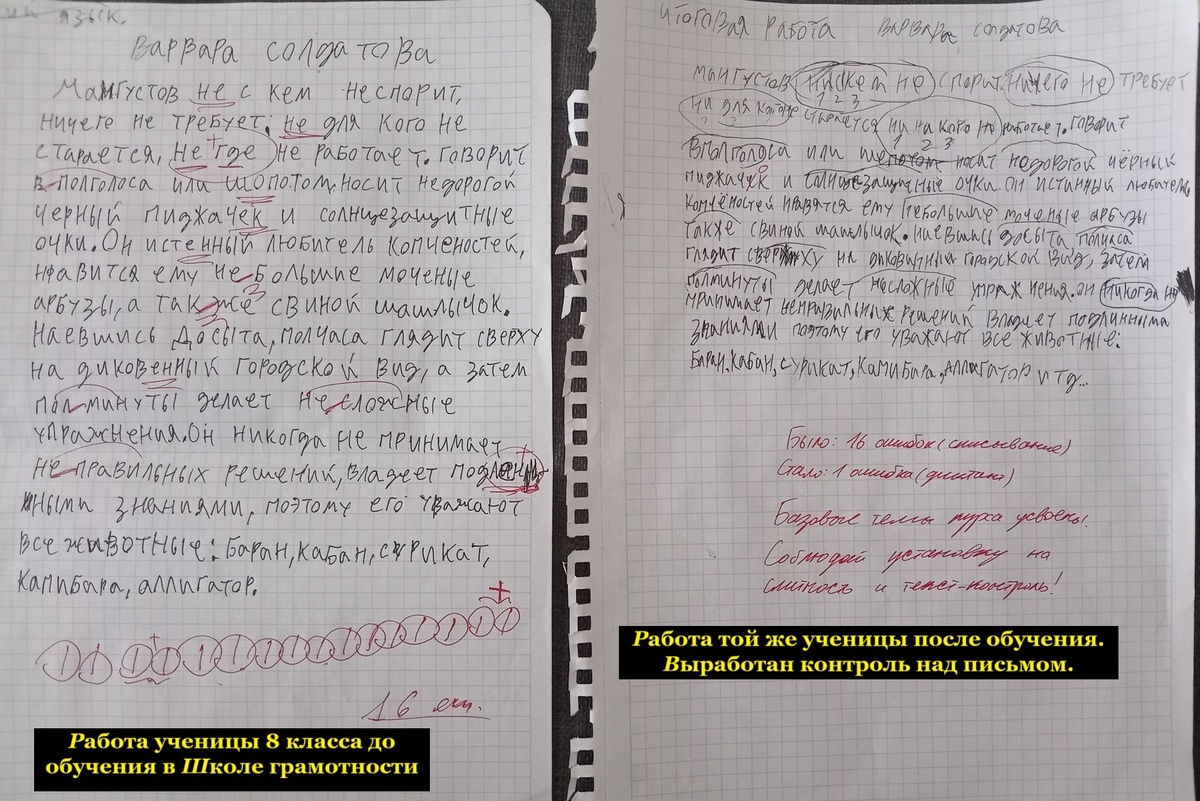 язык.
Варвара солдатова
Мангустов не с кем неспорит,
ничего не требует: не для кого не
старается, не где не работает. Говорит
в полголоса или шопотом. Носит недорогой
черный пиджачек и солнцезащитные
очки. Он истенный любитель копченостей,
нравится ему не большие моченые
арбузы, а так же свиной шашлычок.
Наевшись Досыта, полчаса глядит сверху
на диковенный городской вид, а затем
пол минуты делает не сложные
упражнения. Он никогда не принимает
не правильных решений, владеет подлен
ными знаниями, поэтому его уважают
все жывотные: баран, кабан, сурикат,
капибара, аллигатор.
16 ош.
Работа ученицы 8 класса до
обучения в Школе грамотности
Итоговая работа Варвара солдатова
мангустов ни с кем не спорит. Ничего не требует
ни для кого не старается ни на кого не работает. Говорит
вполголоса или шепотом носит недорогой чёрный
пиджачок и солнцезащитные очки. Он истинный любитель
копчёностей нравятся ему небольшие моченые арбузы
также свиной шашлычок. Наевшись досыта полчаса
глядит сверху на диковинный городской вид, затем
полминуты делает несложные упражнения. он никогда не
принимает неправильных решений владеет подлинными
знаниями поэтому его уважают все животные:
баран, кабан, сурикат, капибара, аллигатор и тд...
Было: 16 ошибок (списывание)
Стало: 1 ошибка (диктант)
Базовые темы курса усвоены!
Соблюдай установку на
слитность и текст-контроль!
Работа той же ученицы после обучения.
Выработан контроль над письмом.